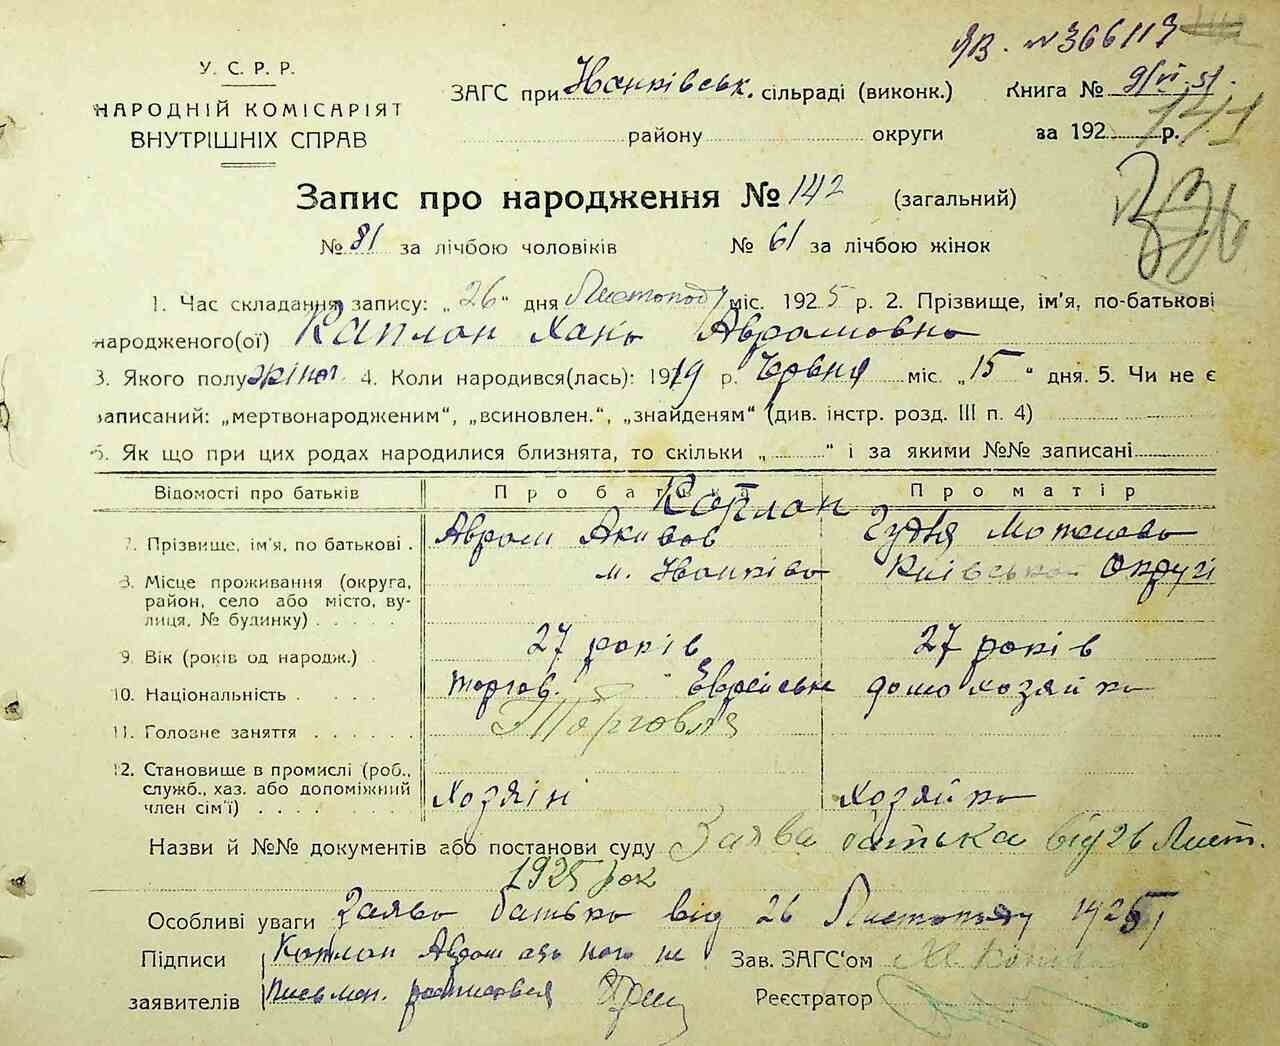 ЯВ. №366117
У. С. Р. Р.
НАРОДНІЙ КОМІСАРІЯТ
ВНУТРІШНІХ СПРАВ
ЗАГС при Іванківськ. сільраді (виконк.) Книга № 9/VI.51.
району округи за 192 р.
141
Запис про народження № 142 (загальний)
№ 81 за лічбою чоловіків № 61 за лічбою жінок
1. Час складання запису: „26“ дня Листопаду міс. 1925 р. 2. Прізвище, ім'я, по-батькові
народженого(ої) Каплан Хана Аврамовна
3. Якого полу жіноч. 4. Коли народився(лась): 1919 р. Червня міс. „15“ дня. 5. Чи не є
записаний: „мертвонародженим“, „всиновлен.“, „знайденям“ (див. інстр. розд. III п. 4)
6. Як що при цих родах народилися близнята, то скільки „ “ і за якими №№ записані
Відомості про батьків Про батька Про матір
Каплан
7. Прізвище, ім'я, по батькові . Аврам Акивов Гудя Мотелева
8. Місце проживання (округа, м. Іванків Київської Округі
район, село або місто, ву-
лиця, № будинку) . . . . .
9. Вік (років од народж.) . 27 років 27 років
10. Національність . . . . . торгов. Еврейська домохозяйка
11. Головне заняття . . . . . . Торговля
12. Становище в промислі (роб.,
служб., хаз. або допоміжний
член сім'ї) . . . . Хозяін хозяйка
Назви й №№ документів або постанови суду Заява батька від 26 Лист.
1925 рок
Особливі уваги Заява батька від 26 Листопаду 1925
Підписи Каплан Аврам а за його не Зав. ЗАГС'ом
заявителів письмен. расписався Реєстратор